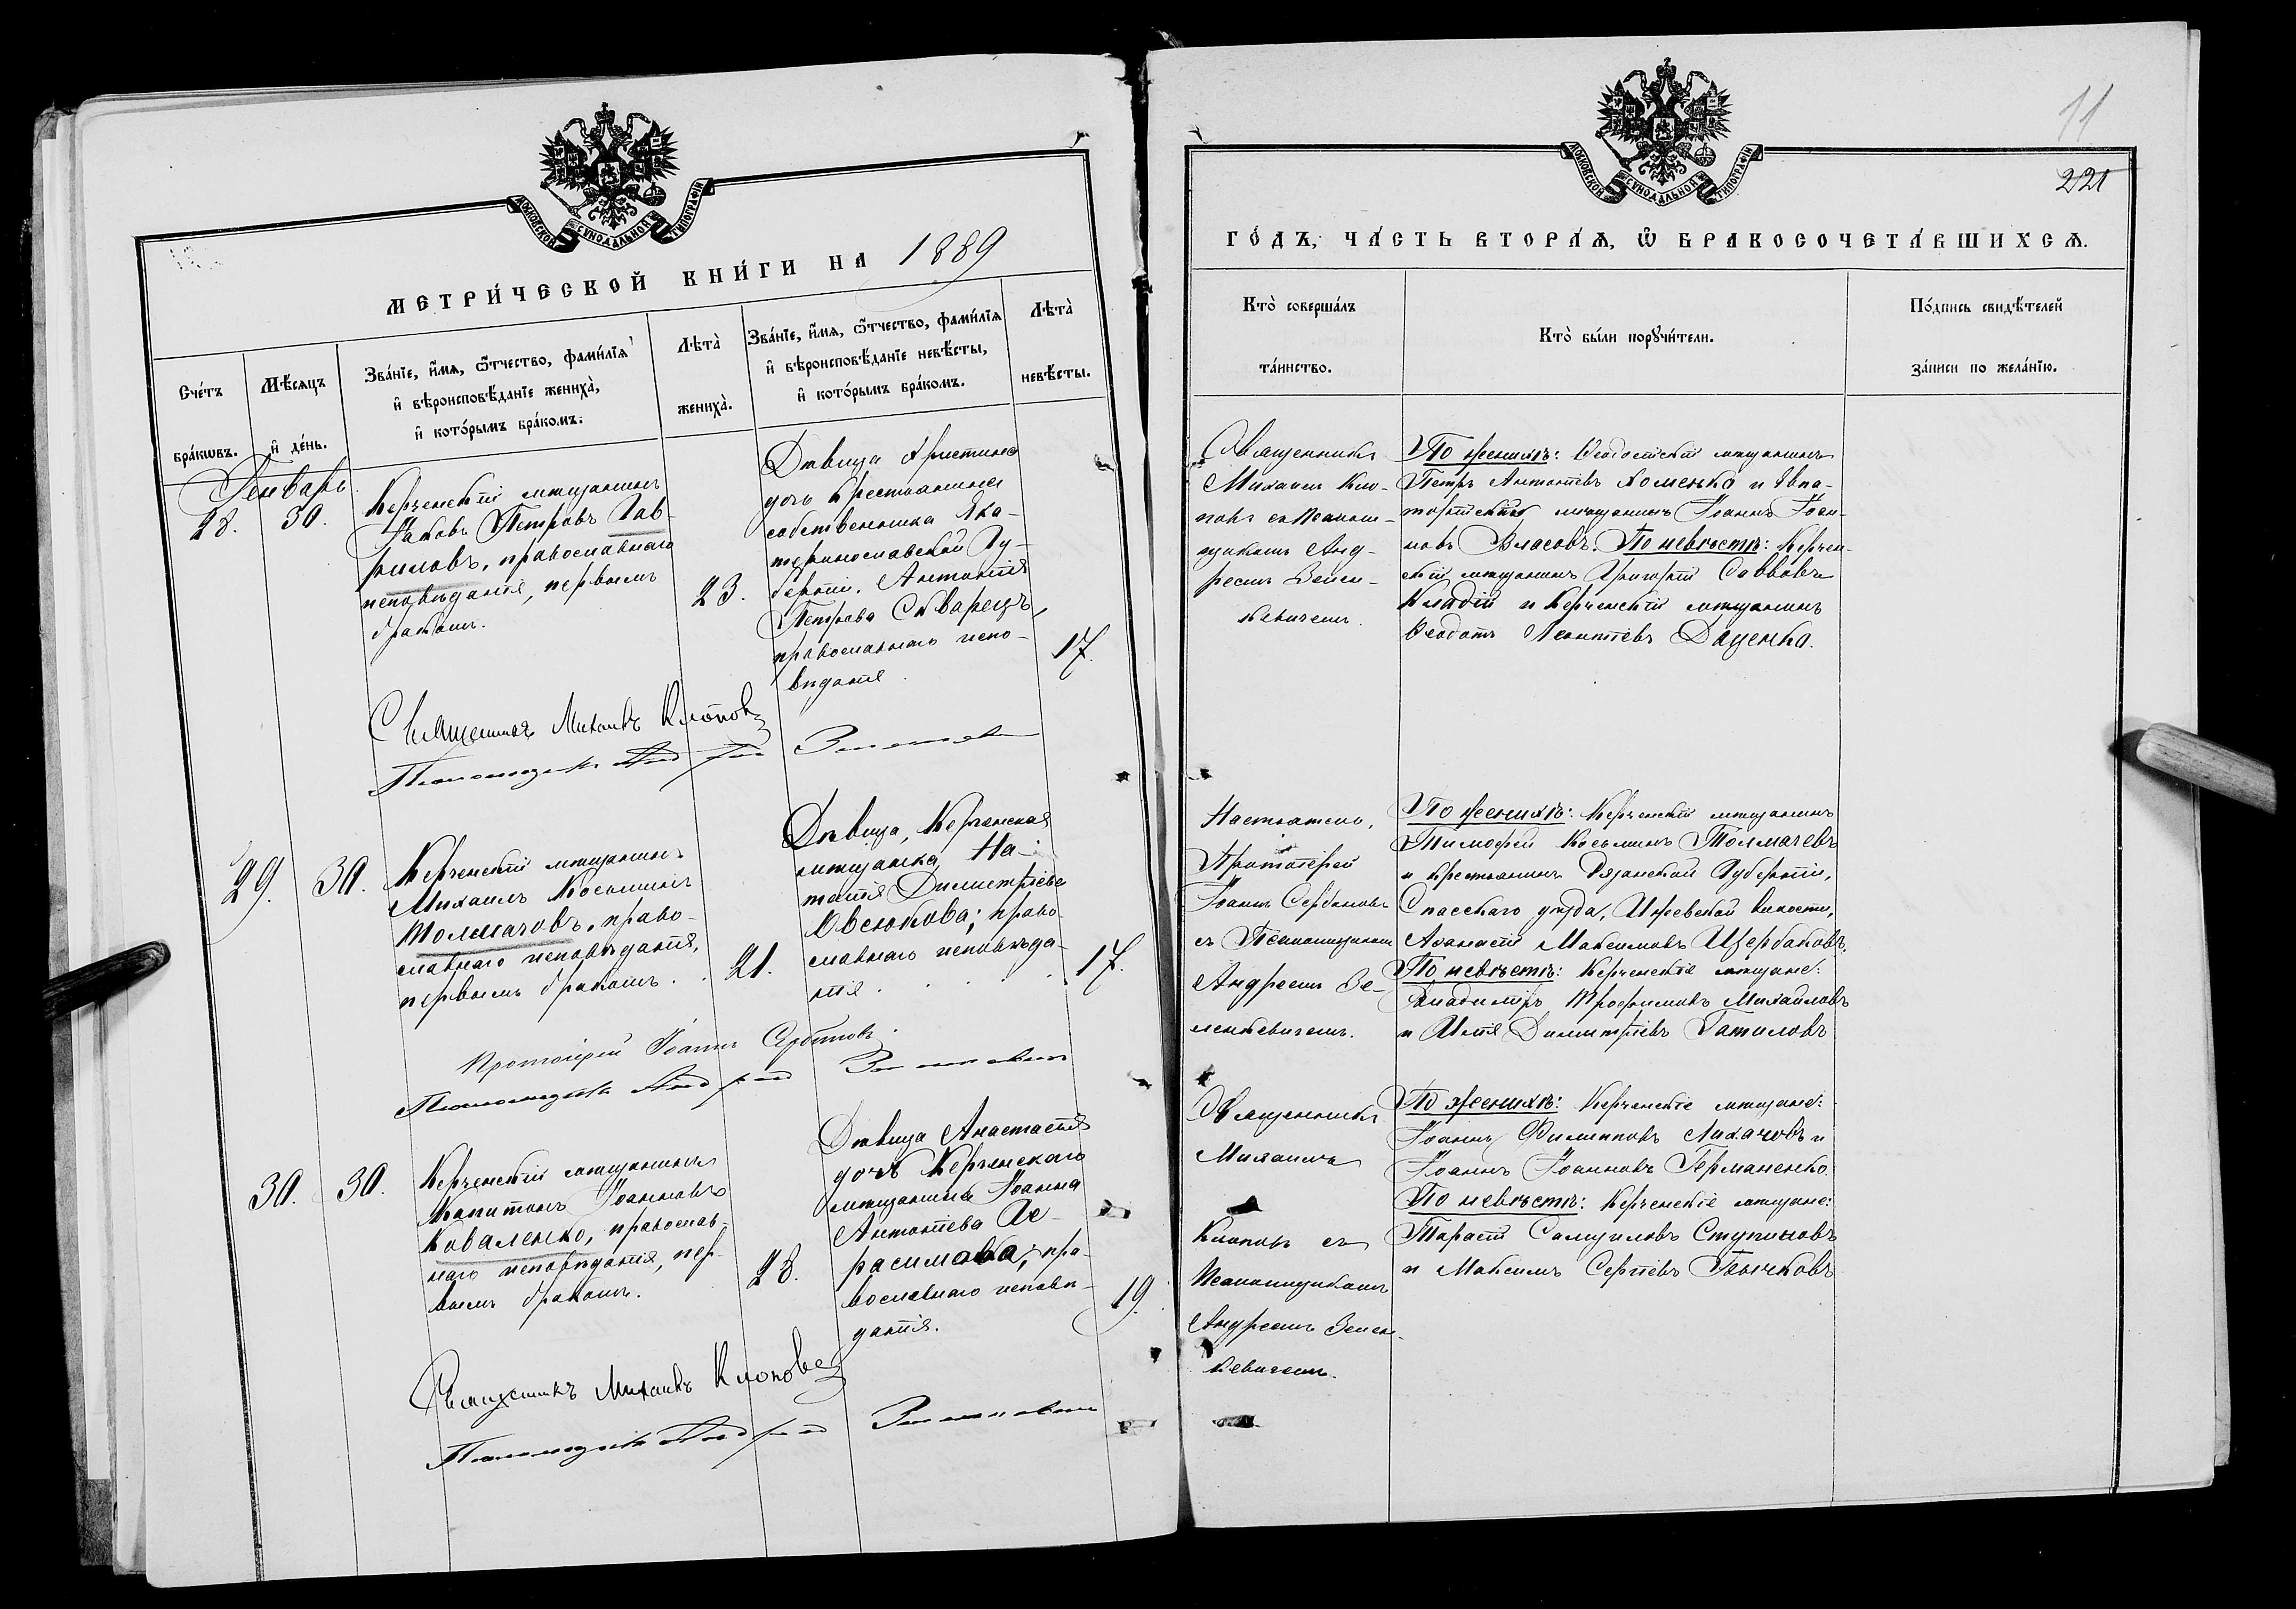 МОСКОВСКОЙ СѴНОДАЛЬНОЙ ТИПОГРАФІИ
МЕТРИ́ЧЕСКОЙ КНИ́ГИ НА 1889
Сче́тъ
бра́кѡвъ.
Мѣ́сяцъ
и҆ де́нь.
Зва́нїе, и҆́мѧ, ѻ҆́тчество, фами́лїѧ
и҆ вѣроисповѣ́данїе жениха̀,
и҆ кото́рымъ бра́комъ.
Лѣта̀
жениха̀.
Зва́нїе, и҆́мѧ, ѻ҆́тчество, фами́лїѧ
и҆ вѣроисповѣ́данїе невѣ́сты,
и҆ кото́рымъ бра́комъ.
Лѣта̀
невѣ́сты.
Генварь
28.
30.
Керченскій мѣщанинъ
Іаковъ Петровъ Гав-
риловъ, православнаго
исповѣданія, первымъ
бракомъ.
23.
Дѣвица Христина
дочь крестьянина
собственника Ека-
теринославской Гу-
берніи, Антонія
Петрова Скварецъ,
православнаго испо-
вѣданія.
17.
Священникъ Михаилъ Клоповъ
Псаломщикъ Андрей
29.
30.
Керченскій мѣщанинъ
Михаилъ Косьминъ
Толмачовъ, право-
славнаго исповѣданія,
первымъ бракомъ.
21.
Дѣвица, Керченская
мѣщанка, На-
талія Димитріева
Овсюкова; право-
славнаго исповѣда-
нія
17.
Протоіерей Іоаннъ Сербиновъ
Псаломщикъ Андрей
30.
30.
Керченскій мѣщанинъ
Капитонъ Іоанновъ
Коваленко, православ-
наго исповѣданія, пер-
вымъ бракомъ.
28.
Дѣвица Анастасія
дочь Керченскаго
мѣщанина Іоанна
Антоніева Ге-
расимова; пра-
вославнаго исповѣ-
данія.
19.
Священникъ Михаилъ Клоповъ
Псаломщикъ Андрей
МОСКОВСКОЙ СѴНОДАЛЬНОЙ ТИПОГРАФІИ
11
221
ГО́ДЪ, ЧА́СТЬ ВТОРА́Ѧ, Ѡ҆ БРАКОСОЧЕТА́ВШИХСѦ.
Кто̀ соверша́лъ
та́инство.
Кто̀ бы́ли порꙋчи́тели.
По́дпись свидѣ́телей
за́писи по жела́нїю.
Священникъ
Михаилъ Кло-
повъ съ псалом-
щикомъ Анд-
реемъ Зелен-
кевичемъ.
По женихѣ: Ѳеодосійскій мѣщанинъ
Петръ Антоніевъ Хоменко и Евпа-
торійскій мѣщанинъ Іоаннъ Іоан-
новъ Власовъ. По невѣстѣ: Керчен-
скій мѣщанинъ Григорій Савовъ
Кладій и Керченскій мѣщанинъ
Ѳеодотъ Леонтіевъ Даценко.
Настоятель,
Протоіерей
Іоаннъ Сербиновъ
съ Псаломщикомъ
Андреемъ Зе-
ленкевичемъ.
По женихѣ: Керченскій мѣщанинъ
Тимофей Косьминъ Толмачевъ
и крестьянинъ Рязанской Губерніи,
Спасскаго уѣзда, Ижевской волости,
Аѳанасій Максимовъ Щербаковъ.
По невѣстѣ: Керченскіе мѣщане:
Владиміръ Трофимовъ Михайловъ
и Илія Димитріевъ Гатиловъ
Священникъ
Михаилъ
Клоповъ съ
Псаломщикомъ
Андреемъ Зелен-
кевичемъ.
По женихѣ: Керченскіе мѣщане:
Іоаннъ Филипповъ Лихачовъ и
Іоаннъ Іоанновъ Германенко.
По невѣстѣ: Керченскіе мѣщане:
Тарасій Самуиловъ Ступиновъ
и Максимъ Сергіевъ Бычковъ